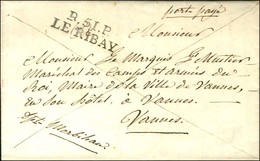 port payé
P. 51. P.
LE RIBAY
Monsieur
Monsieur Le Marquis Le Mintier
Maréchal des Camps et Armées du
Roi, Maire de la Ville de Vannes,
en son hôtel, à Vannes.
Vannes.